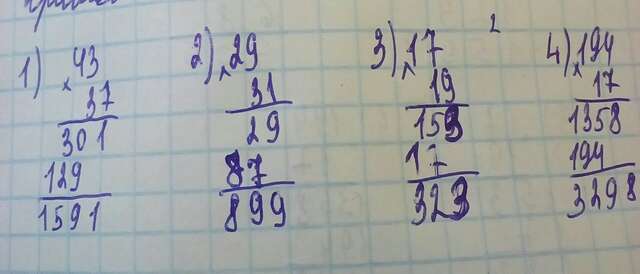 1) 43
× 37
301
129
1591
2) 29
× 31
29
87
899
3) 17
× 19
153
17
323
2
4) 194
× 17
1358
194
3298